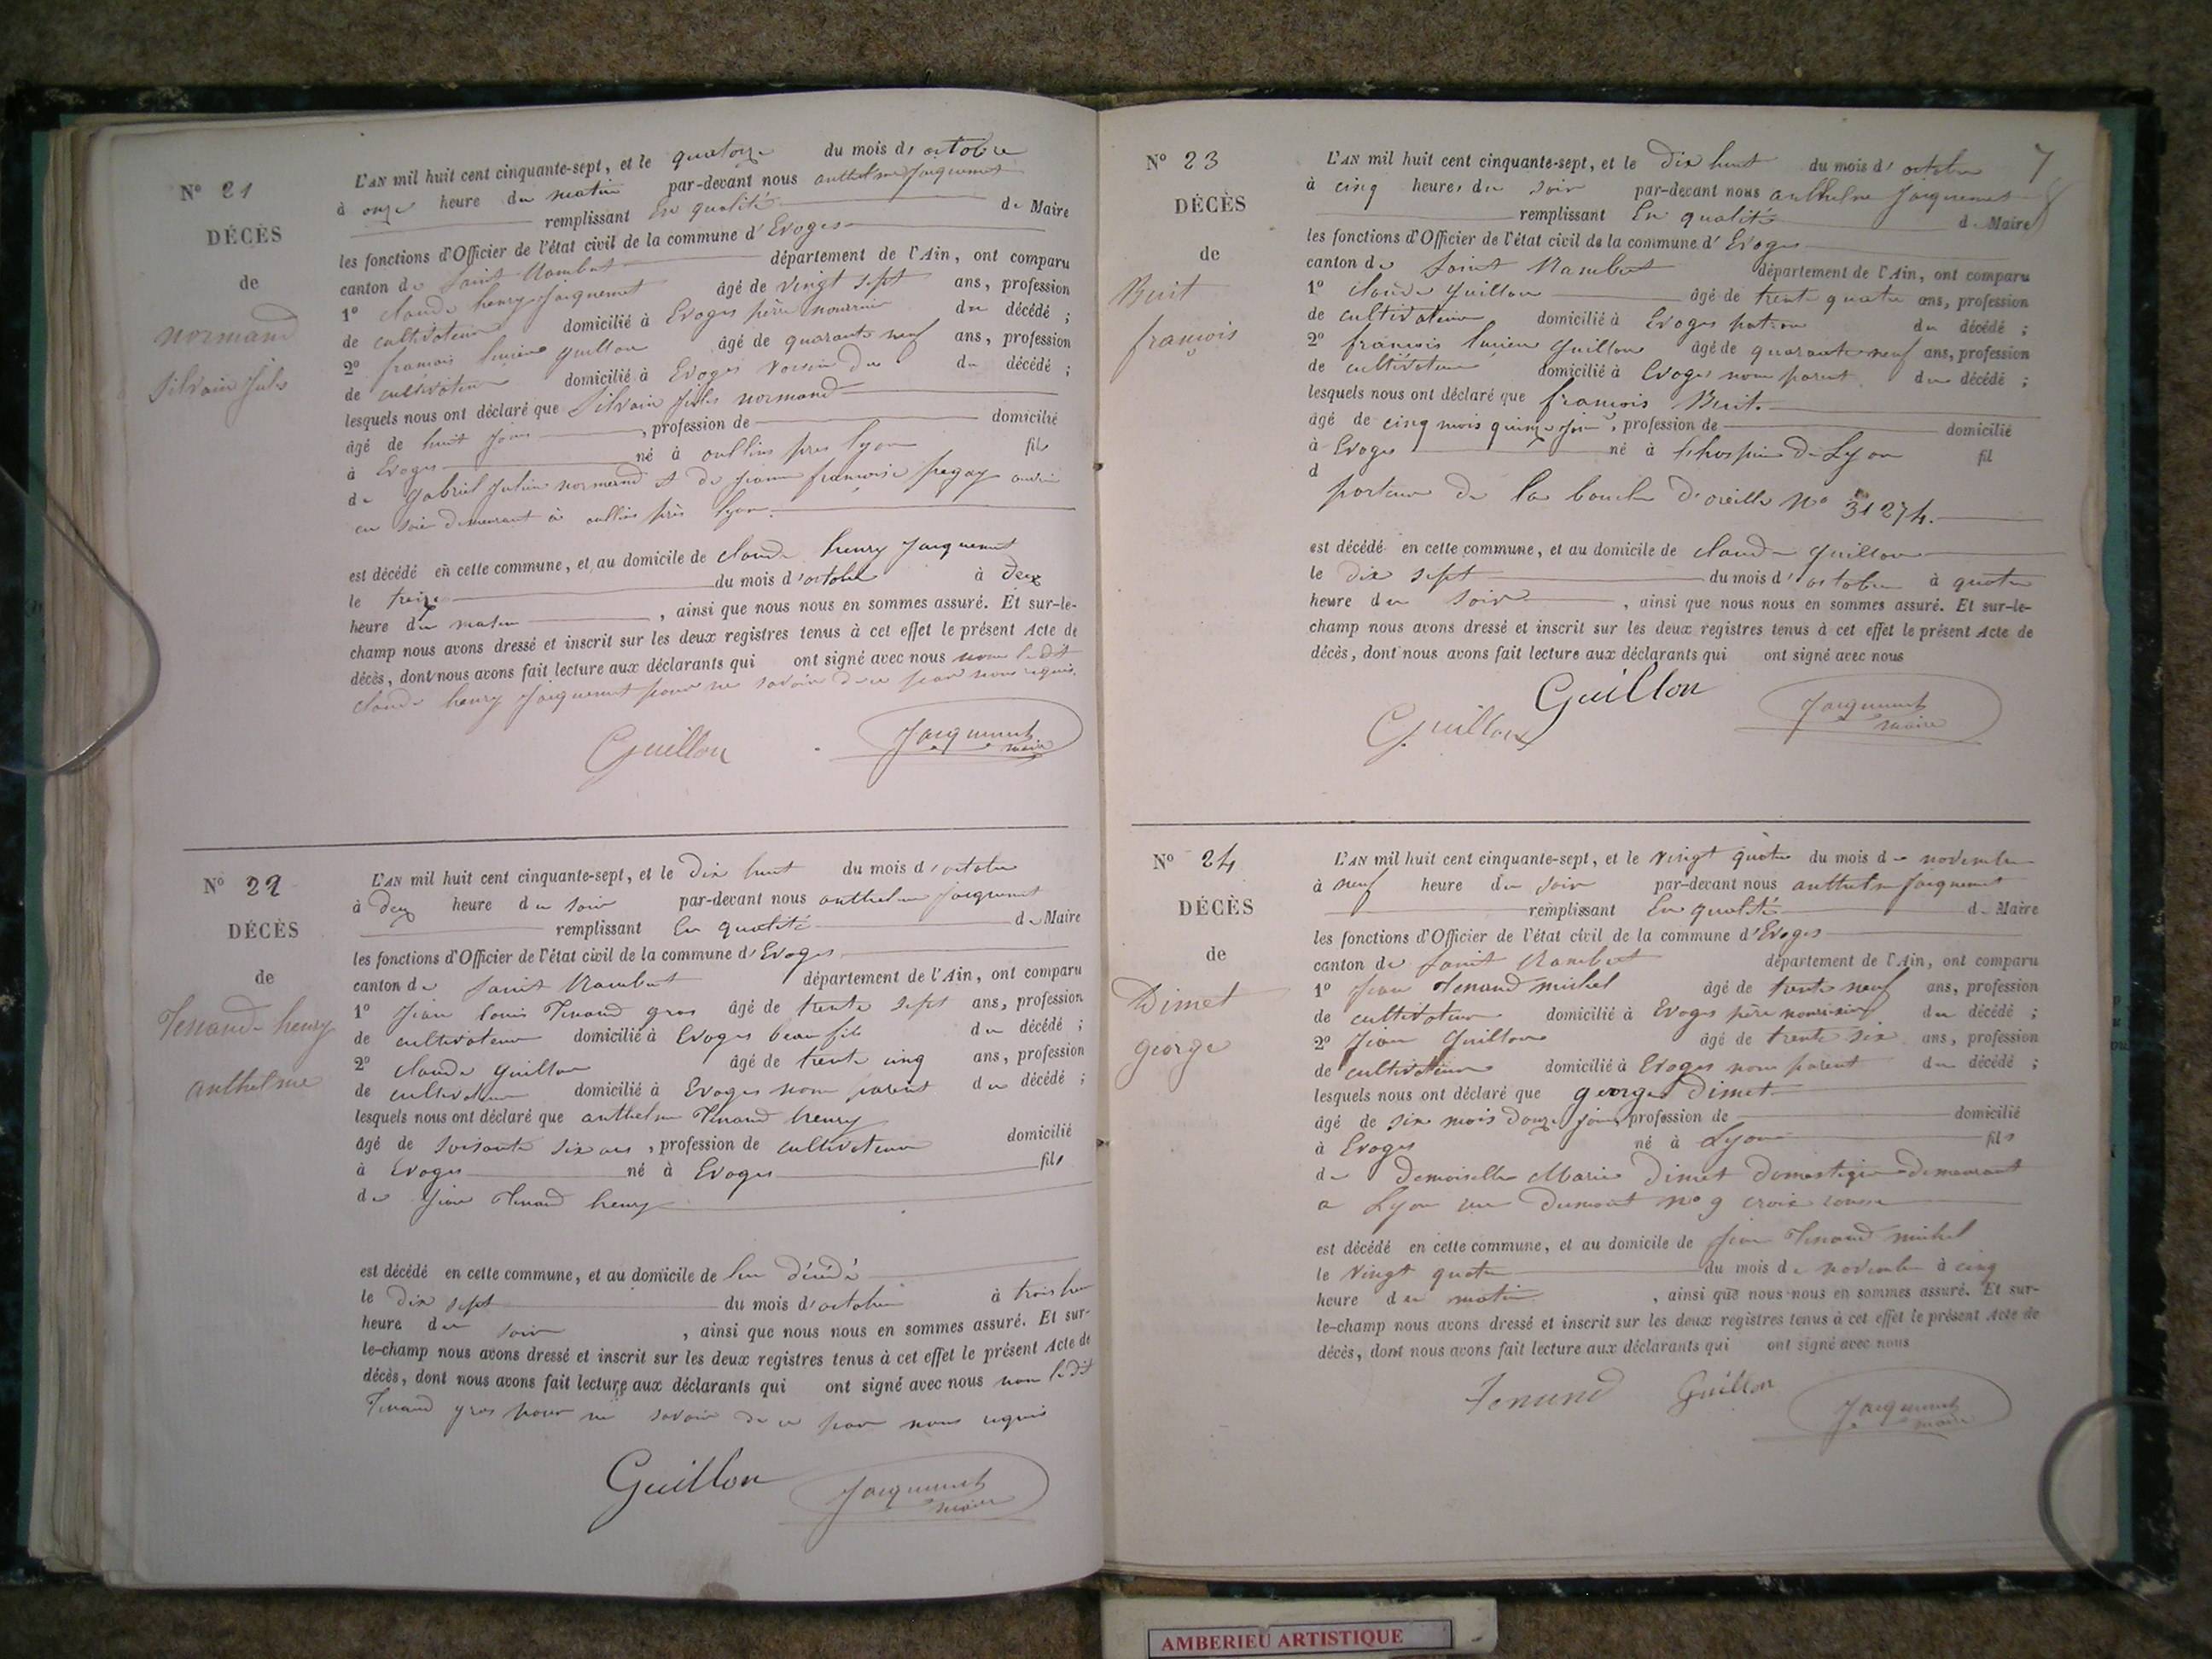 N° 21
DÉCÈS
de
normand
Silvain Jules
L'AN mil huit cent cinquante-sept, et le quatorze du mois d' octobre
à onze heure du matin par-devant nous anthelme Jacquemet
remplissant En qualité de Maire
les fonctions d'Officier de l'état civil de la commune d' Evoges
canton de Saint Rambert département de l'Ain, ont comparu
1° claude henry Jacquemet âgé de vingt sept ans, profession
de cultivateur domicilié à Evoges père nourricier du décédé ;
2° francois lucien guillon âgé de quarante neuf ans, profession
de cultivateur domicilié à Evoges voisin du du décédé ;
lesquels nous ont déclaré que Silvain Jules normand
âgé de huit jours , profession de domicilié
à Evoges né à oullins pres lyon fils
de gabriel Julien normand et de jeanne françoise
en soie demeurant à oullins près lyon.
est décédé en cette commune, et au domicile de claude henry Jacquemet
le treize du mois d'octobre à deux
heure du matin , ainsi que nous nous en sommes assuré. Et sur-le-
champ nous avons dressé et inscrit sur les deux registres tenus à cet effet le présent Acte de
décès, dont nous avons fait lecture aux déclarants qui ont signé avec nous non le dit
claude henry Jacquemet pour ne savoir de ce par nous requis.
Guillon Jacquemet
maire
N° 22
DÉCÈS
de
Tenand henry
anthelme
L'AN mil huit cent cinquante-sept, et le dix huit du mois d'octobre
à deux heure du soir par-devant nous anthelme Jacquemet
remplissant En qualité de Maire
les fonctions d'Officier de l'état civil de la commune d'Evoges
canton de Saint Rambert département de l'Ain, ont comparu
1° Jean louis Tenand gros âgé de trente sept ans, profession
de cultivateur domicilié à Evoges beau fils du décédé ;
2° claude guillon âgé de trente cinq ans, profession
de cultivateur domicilié à Evoges non parent du décédé ;
lesquels nous ont déclaré que anthelme Tenand henry
âgé de soisante six ans , profession de cultivateur domicilié
à Evoges né à Evoges fils
de Jean Tenand henry
est décédé en cette commune, et au domicile de décédé
le dix sept du mois d'octobre à trois
heure du soir , ainsi que nous nous en sommes assuré. Et sur-
le-champ nous avons dressé et inscrit sur les deux registres tenus à cet effet le présent Acte de
décès, dont nous avons fait lecture aux déclarants qui ont signé avec nous non le dit
Tenand gros pour ne savoir de ce par nous requis
Guillon Jacquemet
maire
7
N° 23
DÉCÈS
de
françois
L'AN mil huit cent cinquante-sept, et le dix huit du mois d' octobre
à cinq heures du soir par-devant nous anthelme Jacquemet
remplissant En qualité de Maire
les fonctions d'Officier de l'état civil de la commune d' Evoges
canton de Saint Rambert département de l'Ain, ont comparu
1° claude guillon âgé de trente quatre ans, profession
de cultivateur domicilié à Evoges du décédé ;
2° francois lucien guillon âgé de quarante neuf ans, profession
de cultivateur domicilié à Evoges non parent du décédé ;
lesquels nous ont déclaré que francois
âgé de cinq mois quinze jours, profession de domicilié
à Evoges né à de Lyon fil
d
porteur de la boucle d'oreille N° 31274.
est décédé en cette commune, et au domicile de claude guillon
le dix sept du mois d'octobre à quatre
heure du soir , ainsi que nous nous en sommes assuré. Et sur-le-
champ nous avons dressé et inscrit sur les deux registres tenus à cet effet le présent Acte de
décès, dont nous avons fait lecture aux déclarants qui ont signé avec nous
Guillon Guillon Jacquemet
maire
N° 24
DÉCÈS
de
Dimet
george
L'AN mil huit cent cinquante-sept, et le vingt quatre du mois de novembre
à neuf heure du soir par-devant nous anthelme Jacquemet
remplissant En qualité de Maire
les fonctions d'Officier de l'état civil de la commune d'Evoges
canton de Saint Rambert département de l'Ain, ont comparu
1° Jean Tenand michel âgé de trente neuf ans, profession
de cultivateur domicilié à Evoges père nourricier du décédé ;
2° Jean Guillon âgé de trente six ans, profession
de cultivateur domicilié à Evoges non parent du décédé ;
lesquels nous ont déclaré que george Dimet
âgé de six mois douze jours profession de domicilié
à Evoges né à Lyon fils
de Demoiselle Marie Dimet domestique demeurant
a Lyon rue Dumont N° 9 croix rousse
est décédé en cette commune, et au domicile de Jean Tenand michel
le vingt quatre du mois de novembre à cinq
heure du matin , ainsi que nous nous en sommes assuré. Et sur-
le-champ nous avons dressé et inscrit sur les deux registres tenus à cet effet le présent Acte de
décès, dont nous avons fait lecture aux déclarants qui ont signé avec nous
Tenand Guillon Jacquemet
maire
AMBERIEU ARTISTIQUE